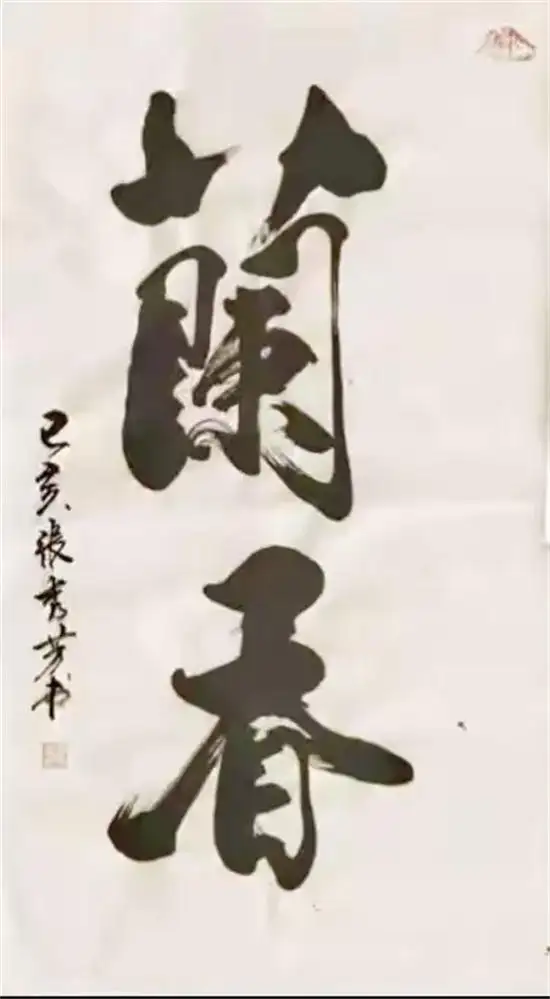 蘭香
己亥張秀芳书